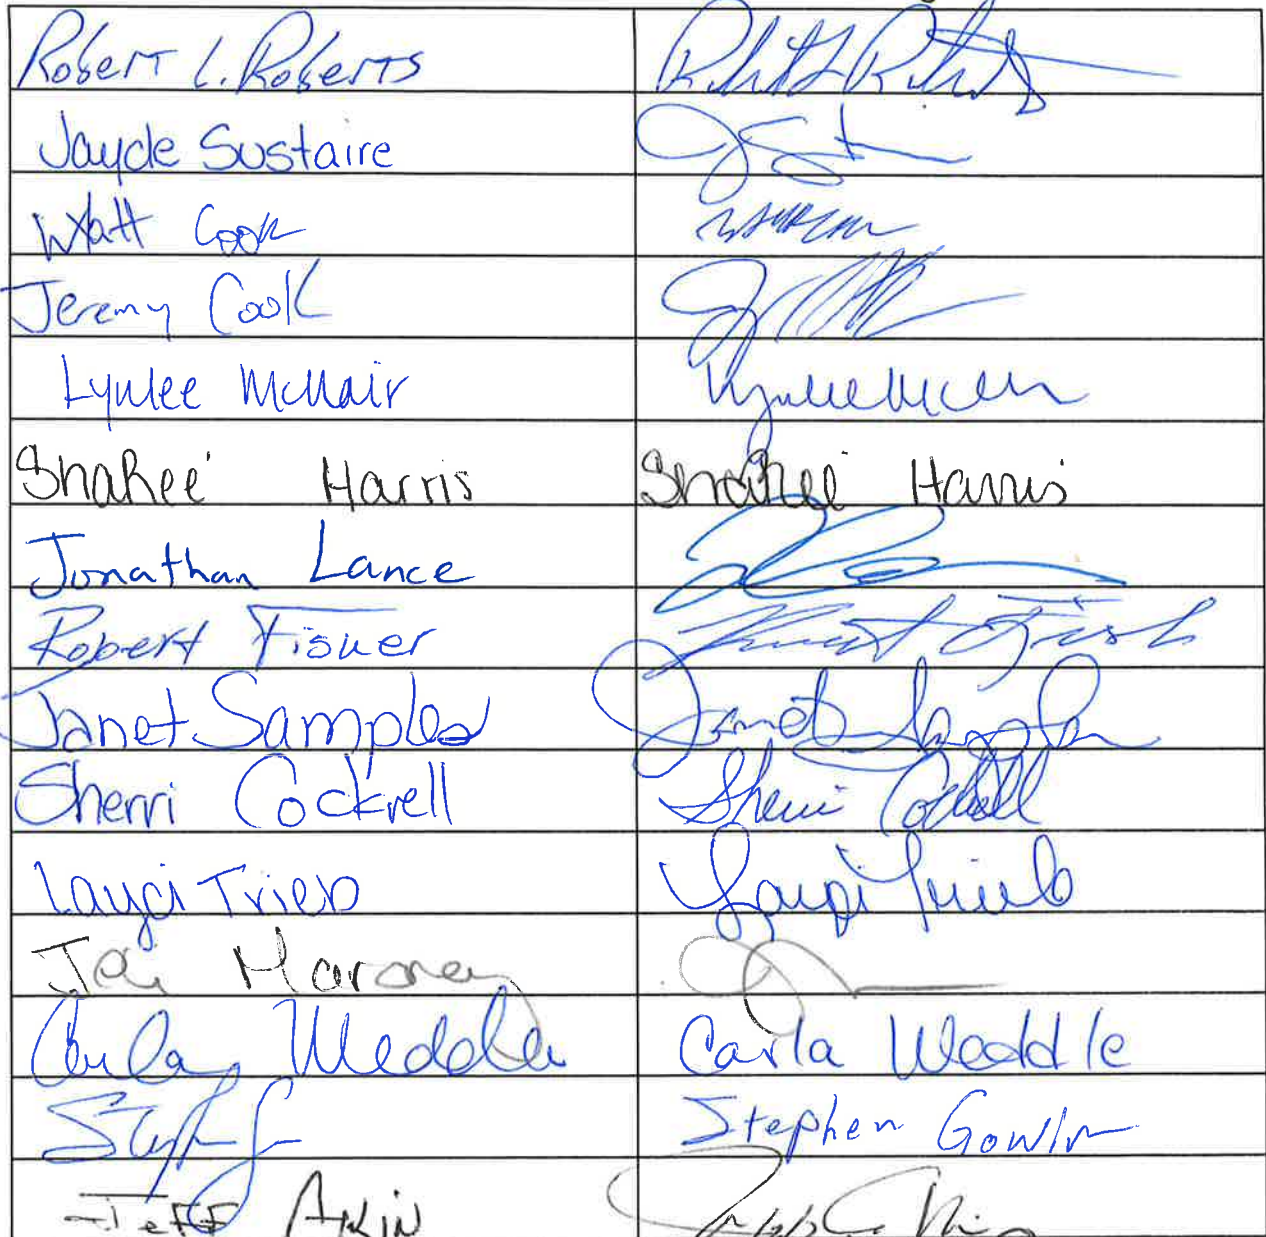 Robert L. Roberts
Jayde Sustaire
Wyatt Cook
Jeremy Cook
Lynlee McNair
Shakee' Harris Shakee' Harris
Jonathan Lance
Robert Fisher
Janet Samples Janet Samples
Sherri Cockrell Sherri Cockrell
Layci Trieb Layci Trieb
Maroney
Carla Weddle Carla Weddle
Stephen Gowin
Jeff Akin